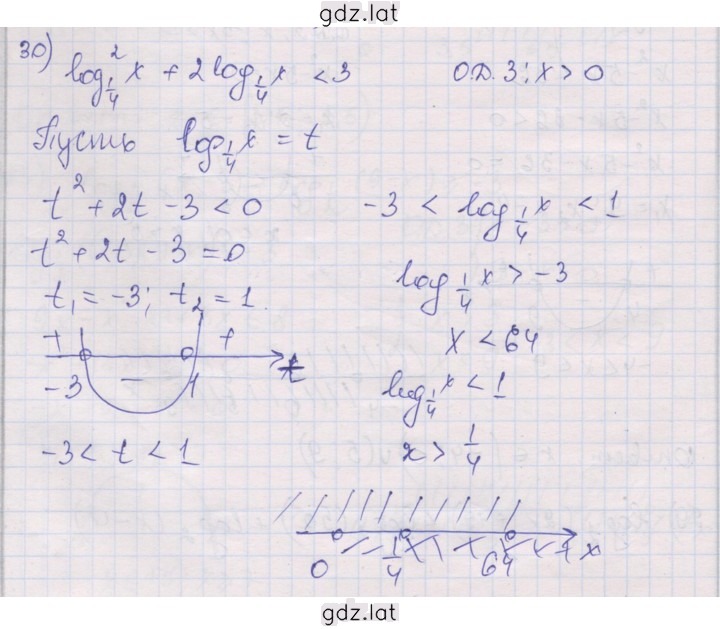 gdz.lat
30) log²_{1/4} x + 2 log_{1/4} x < 3 О.Д.З: x > 0
Пусть log_{1/4} x = t
t² + 2t - 3 < 0
t² + 2t - 3 = 0
t₁ = -3; t₂ = 1
+ +
-3 - 1 t
-3 < t < 1
-3 < log_{1/4} x < 1
log_{1/4} x > -3
x < 64
log_{1/4} x < 1
x > 1/4
0 1/4 64 x
gdz.lat